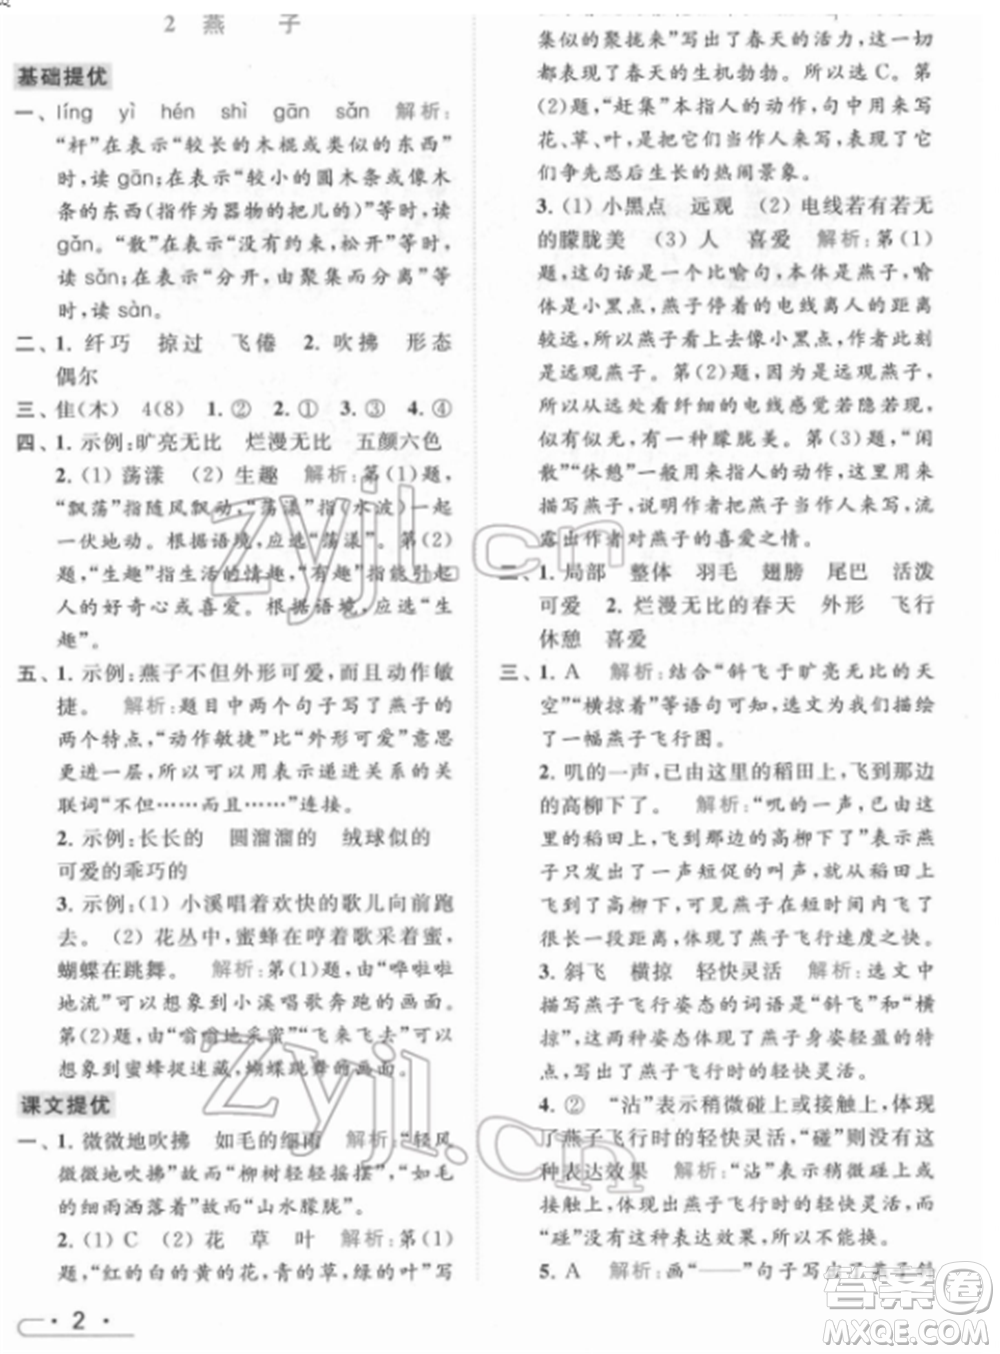 2 燕 子
基础提优
一、líng yì hén shì gān sǎn 解析:
“杆”在表示“较长的木棍或类似的东西”
时,读 gān;在表示“较小的圆木条或像木
条的东西(指作为器物的把儿的)”等时,读
gǎn。“散”在表示“没有约束,松开”等时,
读 sǎn;在表示“分开,由聚集而分离”等
时,读 sàn。
二、1. 纤巧 掠过 飞倦 2. 吹拂 形态
偶尔
三、隹(木) 4(8) 1. ② 2. ① 3. ③ 4. ④
四、1. 示例:旷亮无比 烂漫无比 五颜六色
2. (1) 荡漾 (2) 生趣 解析:第(1)题,
“飘荡”指随风飘动,“荡漾”指(水波)一起
一伏地动。根据语境,应选“荡漾”。第(2)
题,“生趣”指生活的情趣,“有趣”指能引起
人的好奇心或喜爱。根据语境,应选“生
趣”。
五、1. 示例:燕子不但外形可爱,而且动作敏
捷。 解析:题目中两个句子写了燕子的
两个特点,“动作敏捷”比“外形可爱”意思
更进一层,所以可以用表示递进关系的关
联词“不但……而且……”连接。
2. 示例:长长的 圆溜溜的 绒球似的
可爱的乖巧的
3. 示例:(1) 小溪唱着欢快的歌儿向前跑
去。 (2) 花丛中,蜜蜂在哼着歌采着蜜,
蝴蝶在跳舞。 解析:第(1)题,由“哗啦啦
地流”可以想象到小溪唱歌奔跑的画面。
第(2)题,由“嗡嗡地采蜜”“飞来飞去”可以
想象到蜜蜂捉迷藏,蝴蝶跳舞的画面。
课文提优
一、1. 微微地吹拂 如毛的细雨 解析:“轻风
微微地吹拂”故而“柳树轻轻摇摆”,“如毛
的细雨洒落着”故而“山水朦胧”。
2. (1) C (2) 花 草 叶 解析:第(1)
题,“红的白的黄的花,青的草,绿的叶”写
· 2 ·
集似的聚拢来”写出了春天的活力,分别写
出春天的生机勃勃。所以选 C。第
(2)题,“赶集”本指人的动作,句中用来写
花、草、叶,是把它们当作人来写,写出了它
们争先恐后生长的热闹景象。
3. (1) 小黑点 远观 (2) 电线若有若无
的朦胧美 (3) 人 喜爱 解析:第(1)
题,这句话是一个比喻句,本体是燕子,喻
体是小黑点,燕子停着的电线离人的距离
较远,所以燕子看上去像小黑点,作者此刻
所处的位置距离燕子较远,是远观燕子。
第(2)题,远远看去纤细的电线若隐若现,
似有似无,有一种朦胧美。第(3)题,“闲
散”“休憩”一般用来指人的动作,这里用来
描写燕子,说明作者把燕子当作人来写,流
露出作者对燕子的喜爱之情。
二、1. 局部 整体 羽毛 翅膀 尾巴 活泼
可爱 2. 烂漫无比的春天 外形 飞行
休憩 喜爱
三、1. A 解析:结合“斜飞于旷亮无比的天
空”“横掠着”等语句可知,选文为我们描绘
了一幅燕子飞行图。
2. 叽的一声,已由这里的稻田上,飞到那边
的高柳下了。 解析:“叽的一声,已由这
里的稻田上,飞到那边的高柳下了”写出燕
子只发出了一声短促的叫声,就从稻田上
飞到了高柳下,可见燕子在短时间内飞行
的距离之长,体现了燕子飞行速度之快。
3. 斜飞 横掠 轻快灵活 解析:选文中
描写燕子飞行姿态的词语是“斜飞”和“横
掠”,这两个词语体现了燕子身姿轻盈的特
点,写出了燕子飞行时的轻快灵活。
4. ② “沾”表示稍微碰上或接触上,写出
了燕子飞行时的轻快灵活,“碰”则没有这
种表达效果 解析:“沾”表示稍微碰上或
接触上,体现了燕子飞行时的轻快灵活。
“碰”是突然接触的意思,不能体现轻快。
5. A 解析:画“——”句子写出了燕子斜